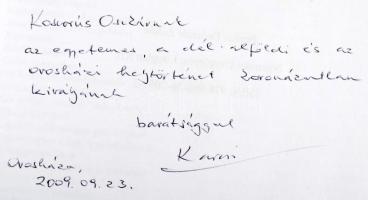 Koszorús Oszkárnak
az egyetemes, a dél-alföldi és az
orosházi helytörténet koronázatlan
királyának
barátsággul
Orosháza,
2009.09.23.